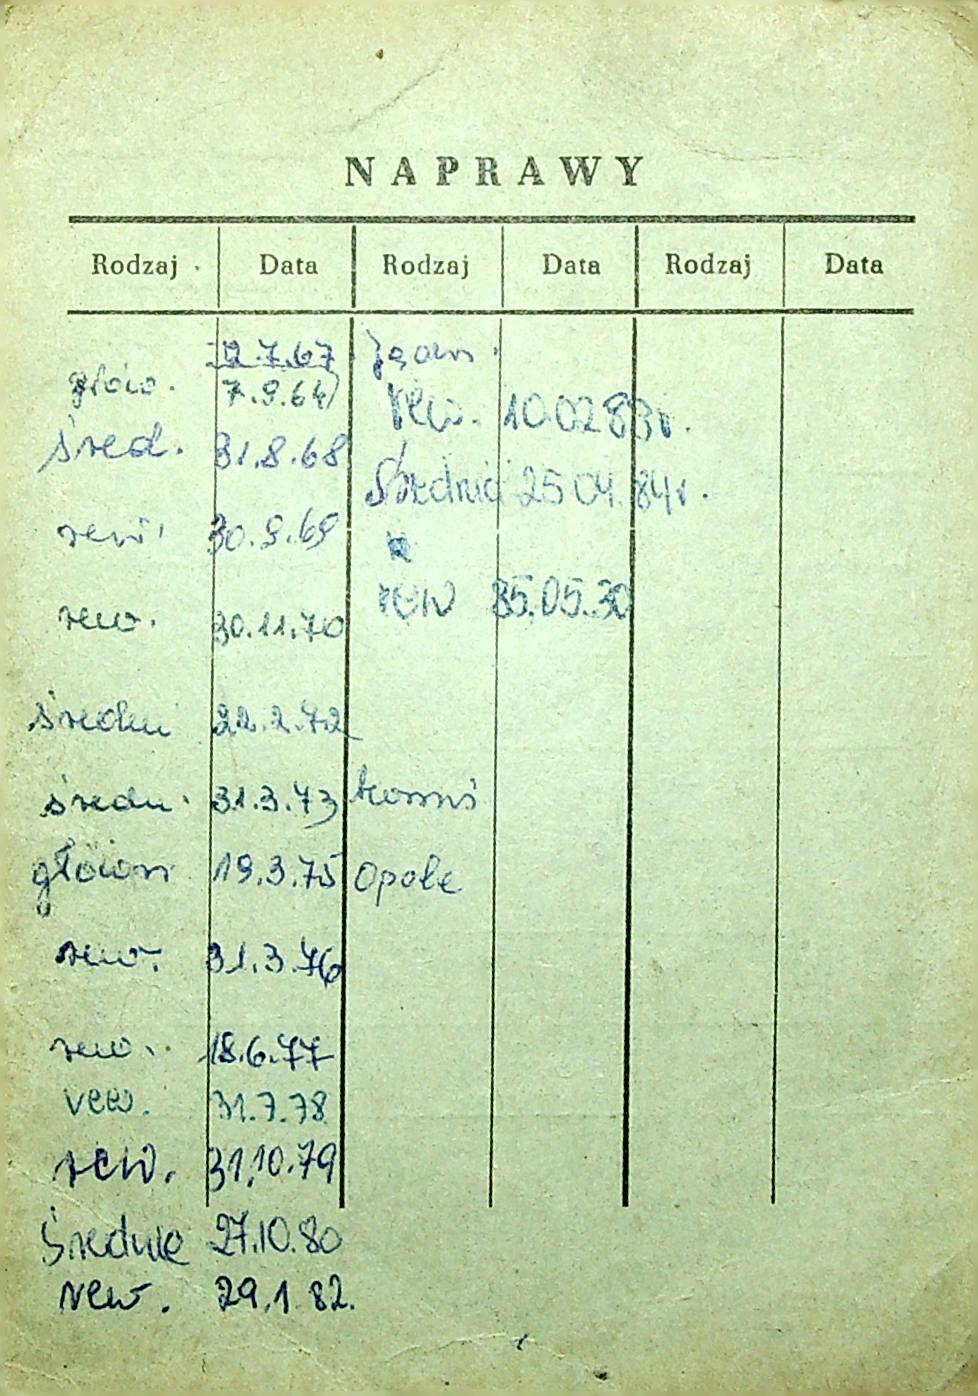 NAPRAWY
Rodzaj Data Rodzaj Data Rodzaj Data
2.7.67
głów. 7.9.64
śred. 31.8.68
rew. 30.9.69
rew. 30.11.70
średni 22.2.72
średn. 31.3.73
główn 19.3.75 Opole
rew. 31.3.76
rew. 18.6.77
rew. 31.7.78
rew. 31.10.79
Średnie 27.10.80
rew. 29.1.82.
rew. 10.02.83r.
Średnia 25.04.84r.
rew 85.05.30